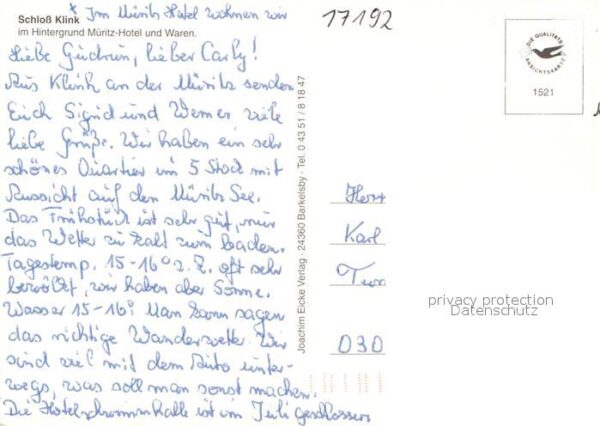 * Im Müritz Hotel wohnen wir
Schloß Klink
im Hintergrund Müritz-Hotel und Waren.
Liebe Gudrun, lieber Carly!
Aus Klink an der Müritz senden
Euch Sigrid und Werner viele
liebe Grüße. Wir haben ein sehr
schönes Quartier im 5 Stock mit
Aussicht auf den Müritz See.
Das Frühstück ist sehr gut, nur
das Wetter zu kalt zum baden.
Tagestemp. 15-16° z. Z. oft sehr
bewölkt, wir haben aber Sonne.
Wasser 15-16° Man kann sagen
das richtige Wanderwetter. Wir
sind viel mit dem Auto unter-
wegs, was soll man sonst machen.
Die Hotelschwimmhalle ist im Juli geschlossen
17192
Joachim Eicke Verlag · 24360 Barkelsby · Tel. 0 43 51 / 8 18 47
DIE QUALITÄTS
ANSICHTSKARTE
1521
Herr
Karl
030
privacy protection
Datenschutz